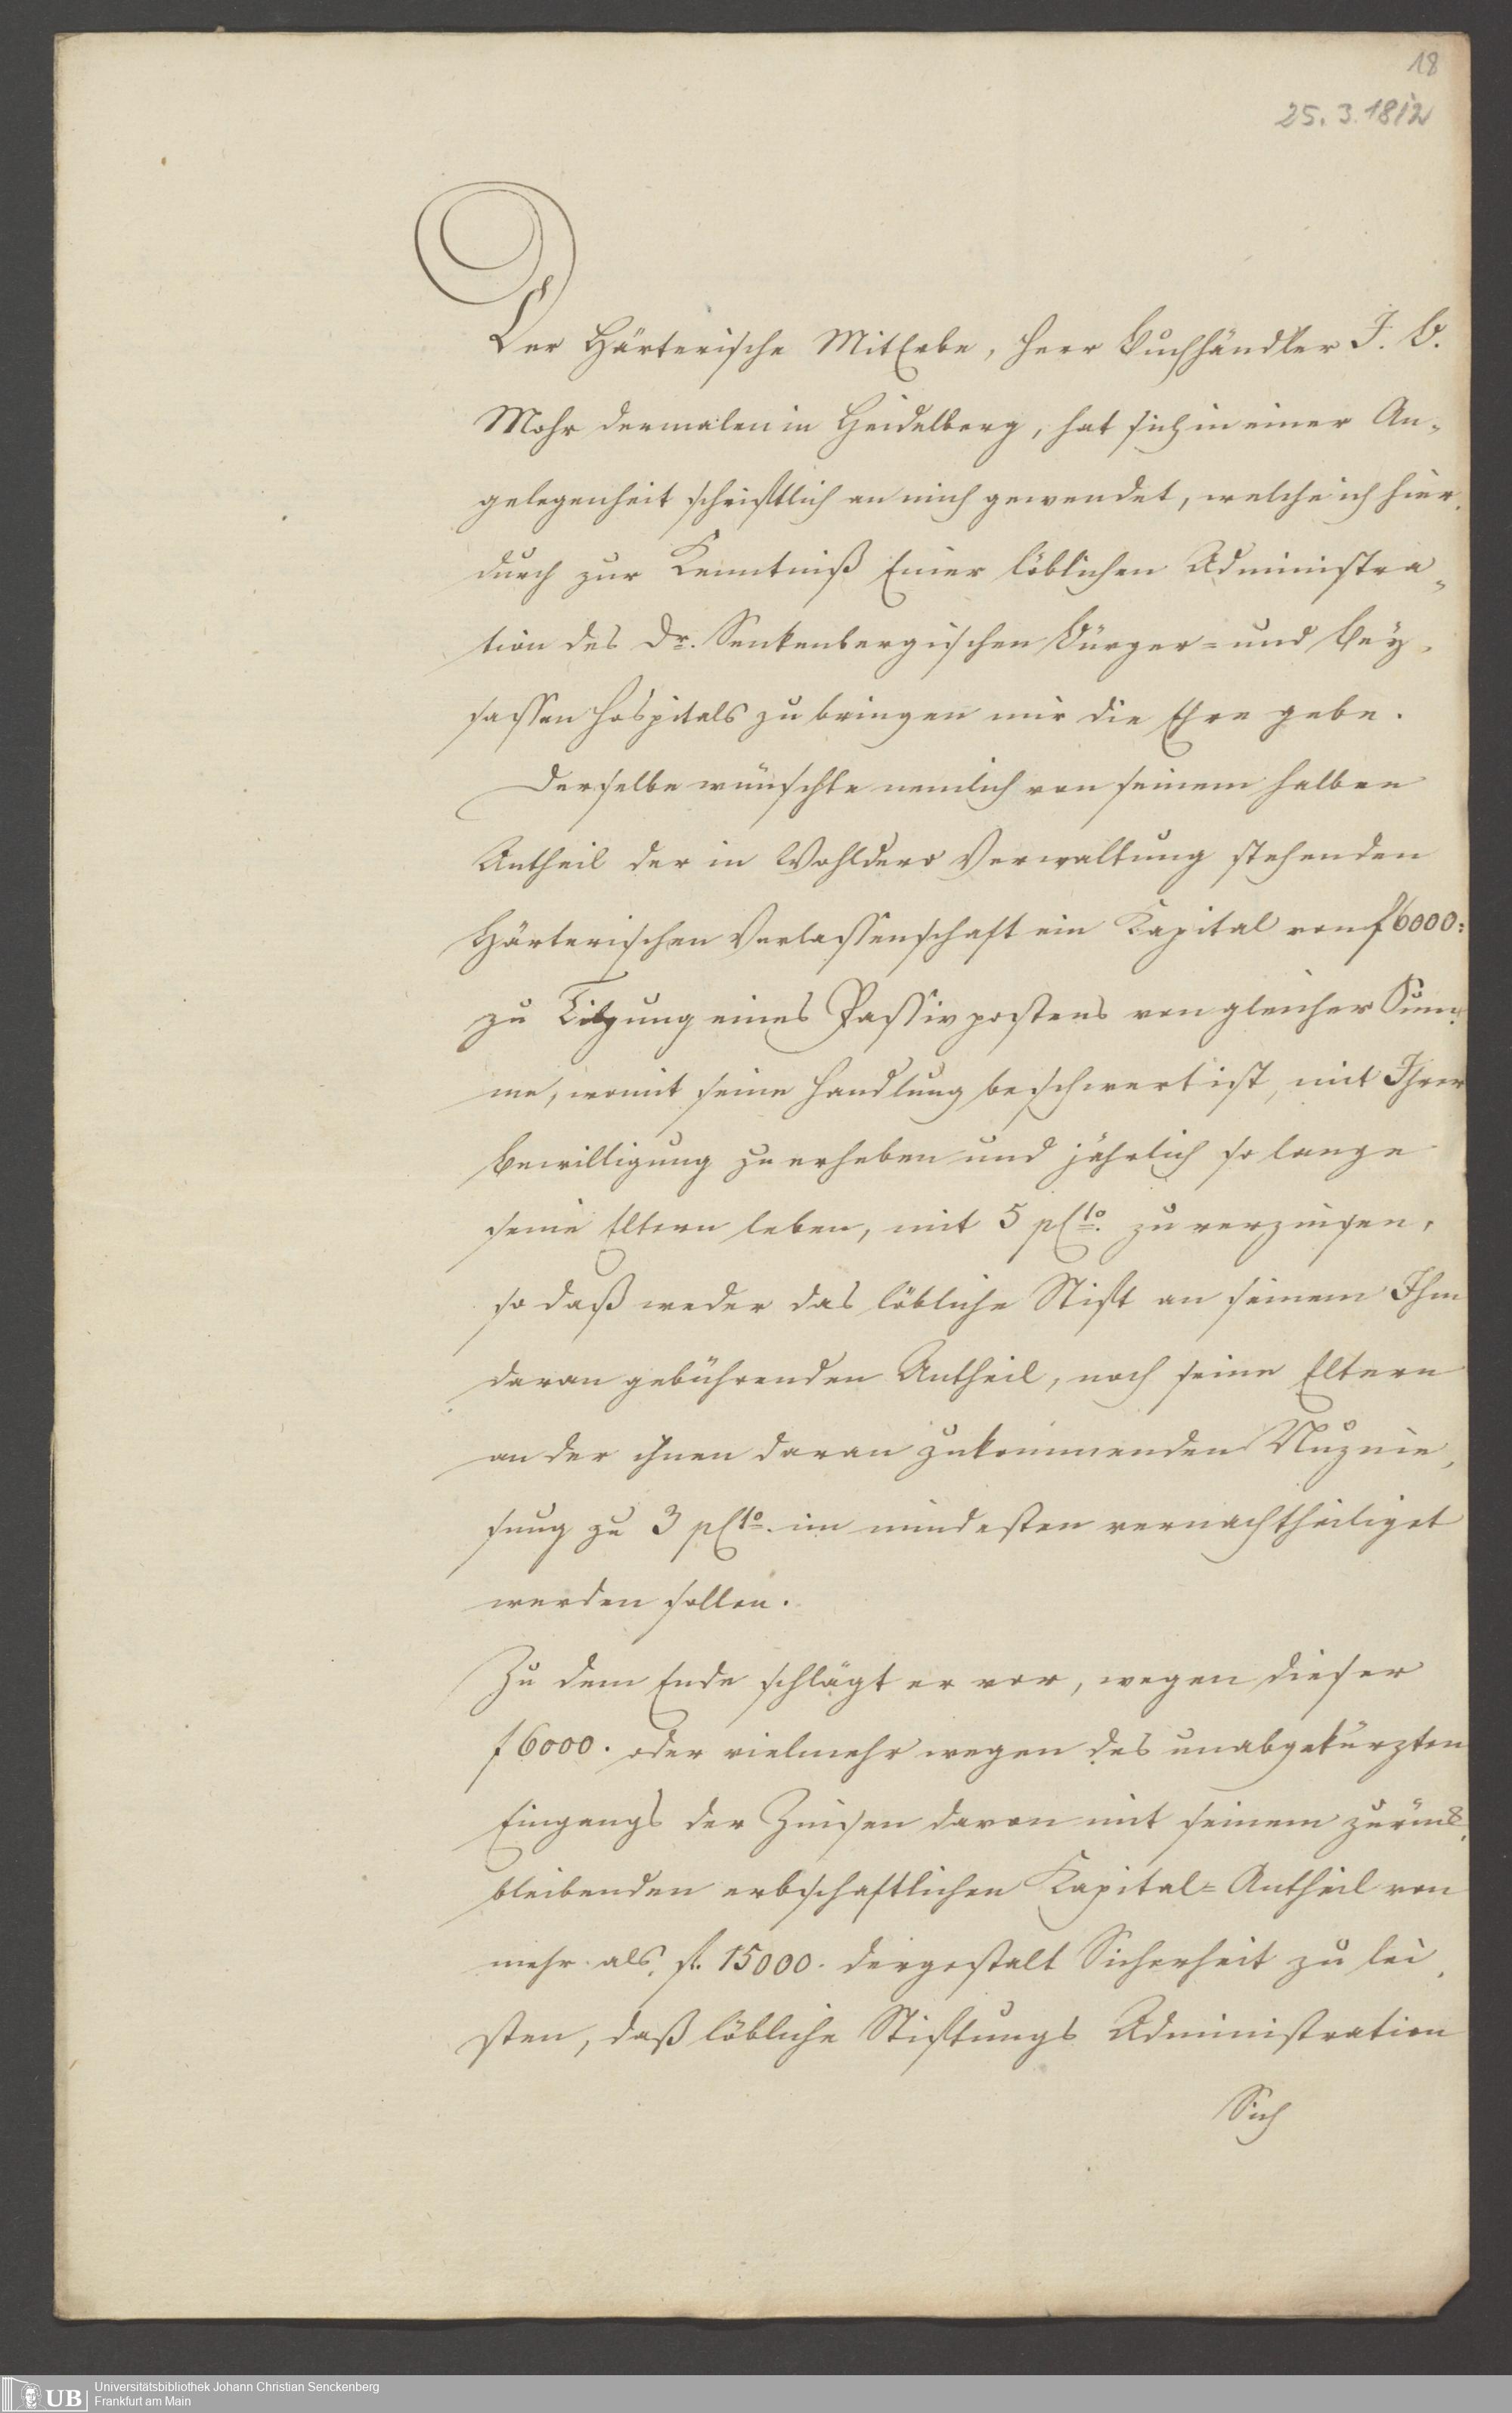 18
25. 3. 1812
Der Härterische MitErbe, Herr Buchhändler J. B.
Mohr dermalen in Heidelberg, hat sich in einer An-
gelegenheit schriftlich an mich gewendet, welche ich hier-
durch zur Kenntniß Einer löblichen Administra-
tion des Dr. Senkenbergischen Bürger- und Bey-
sassen Hospitals zu bringen mir die Ehre gebe.
Derselbe wünschte nemlich von seinem halben
Antheil der in Wohldero Verwaltung stehenden
Härterischen Verlassenschaft ein Kapital von f 6000:
zu Tilgung eines Passivpostens von gleicher Sum-
me, womit seine Handlung beschwert ist, mit Ihrer
Bewilligung zu erheben und jährlich so lange
seine Eltern leben, mit 5 pCto. zu verzinsen,
so daß weder das löbliche Stift an seinem Ihm
daran gebührenden Antheil, noch seine Eltern
an der ihnen daran zukommenden Nuznie-
sung zu 3 pCto. im mindesten vernachtheiliget
werden sollen.
Zu dem Ende schlägt er vor, wegen dieser
f 6000. oder vielmehr wegen des unabgekürzten
Eingangs der Zinsen davon mit seinem zurück-
bleibenden erbschaftlichen Kapital-Antheil von
mehr als fl. 15000. dergestalt Sicherheit zu lei-
sten, daß löbliche Stiftungs Administration
Sich
UB
Universitätsbibliothek Johann Christian Senckenberg
Frankfurt am Main